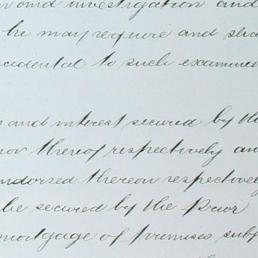 and investigation and
he may require and
incidental to such
and interest secured by the
thereof respectively and
endorsed thereon respectively
be secured by the Prior
mortgage of premises